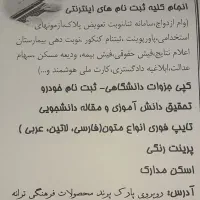 انجام کلیه ثبت نام های اینترنتی
(وام ازدواج،سامانه ثنا،نوبت تعویض پلاک،آزمونهای
استخدامی،پاورپوینت ،ثبتنام کنکور ،نوبت دهی بیمارستان
اعلام نتایج،فیش حقوقی،فیش بیمه، ودیعه مسکن ،سهام
عدالت،ابلاغیه دادگستری،کارت ملی هوشمند و...)
کپی جزوات دانشگاهی- ثبت نام خودرو
تحقیق دانش آموزی و مقاله دانشجویی
تایپ فوری انواع متون(فارسی، لاتین، عربی )
پرینت رنگی
اسکن مدارک
آدرس: روبروی پارک پرند محصولات فرهنگی ترانه